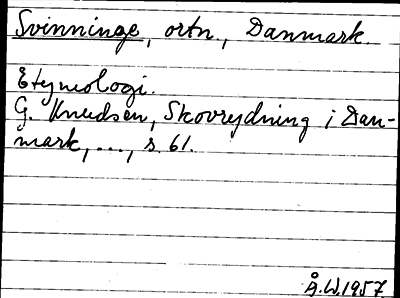 Svinninge, ortn., Danmark.
Etymologi.
G. Knudsen, Skovrydning i Dan-
mark, ..., s. 61.
Å.W. 1957.